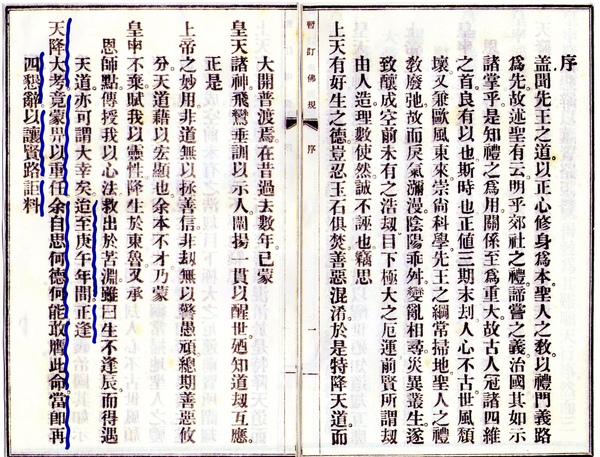 序
蓋聞先王之道。以正心修身為本。聖人之教。以禮門義路
為先。故述聖有云。明乎郊社之禮。禘嘗之義。治國其如示
諸掌乎。是知禮之為用。關係至為重大。故古人冠諸四維
之首。良有以也。斯時也。正值三期末刦。人心不古。世風頹
壞。又兼歐風東來。崇尚科學。先王之綱常掃地。聖人之禮
教廢弛。故而戾氣瀰漫。陰陽乖舛。變亂相尋。災異叢生。遂
致釀成空前未有之浩刦。目下極大之厄運。前賢所謂刦
由人造。理數使然。誠不誣也。竊思
上天有好生之德。豈忍玉石俱焚。善惡混淆。於是特降天道。而
暫訂佛規
序
一
大開普渡焉。在昔過去數年。已蒙
皇天諸神。飛鸞垂訓以示人。闡揚一貫以醒世。廼知道刦互應。
正是
上帝之妙用。非道無以拯善信。非刦無以警愚頑。總期善惡攸
分。天道藉以宏顯也。余本不才。乃蒙
皇申不棄。賦我以靈性。降生於東魯。又承
恩師點傳。授我以心法。救出於苦淵。雖曰生不逢辰。而得遇
天道。亦可謂大幸矣。迨至庚午年間。正逢
天降大考。竟蒙畀以重任。余自思何德何能。敢膺此命。當即再
四懇辭。以讓賢路。詎料